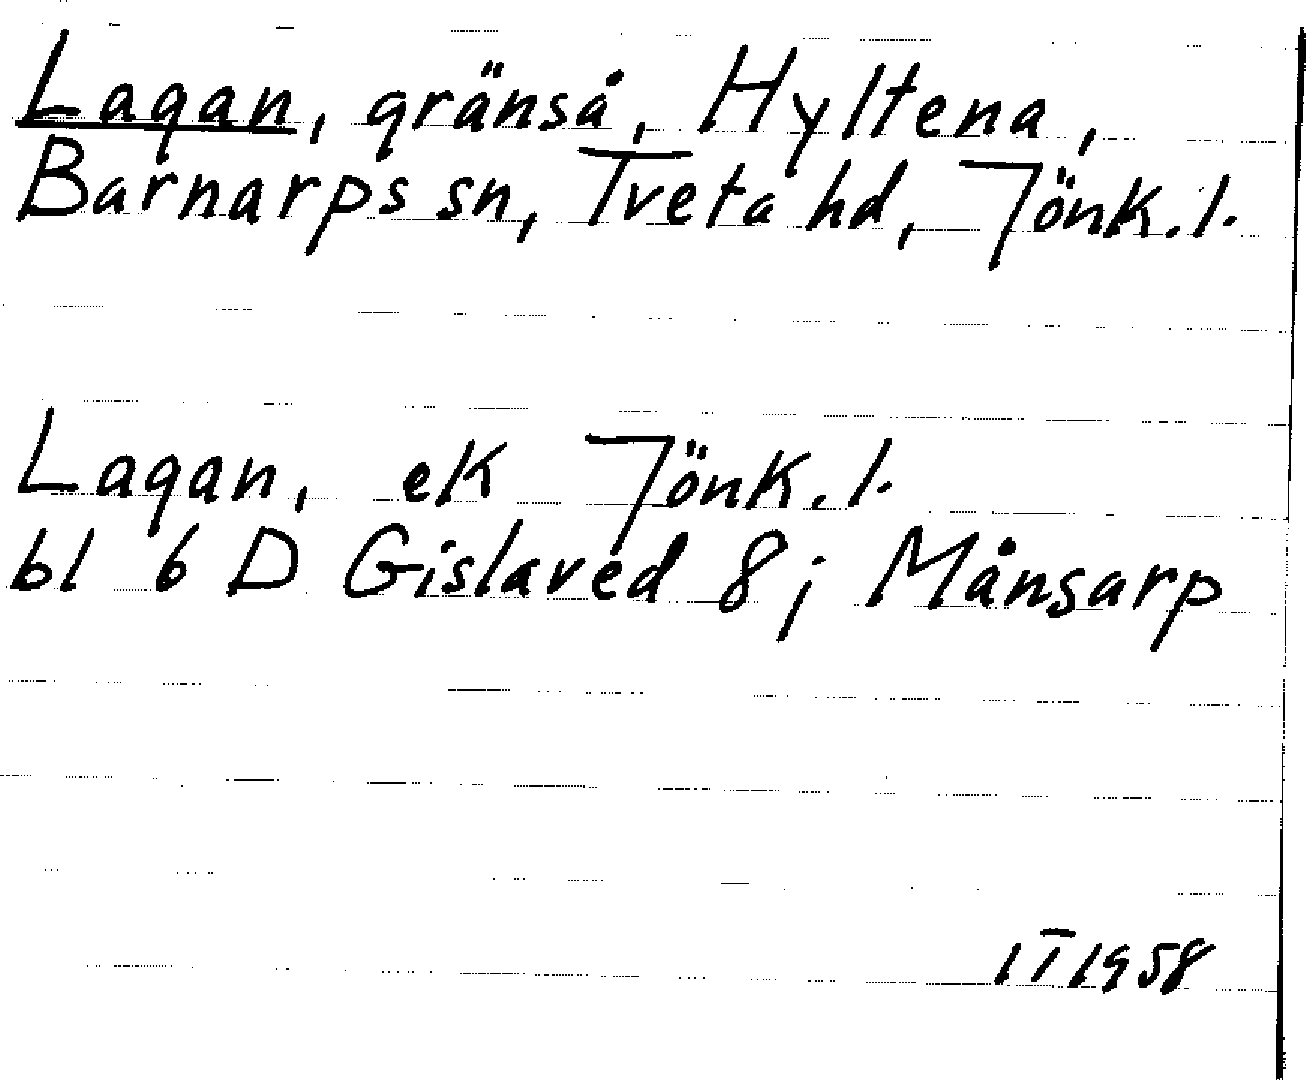 Lagan, gränså, Hyltena,
Barnarps sn, Tveta hd, Jönk.l.
Lagan, ek Jönk.l.
bl 6 D Gislaved 8j Månsarp
IT1958